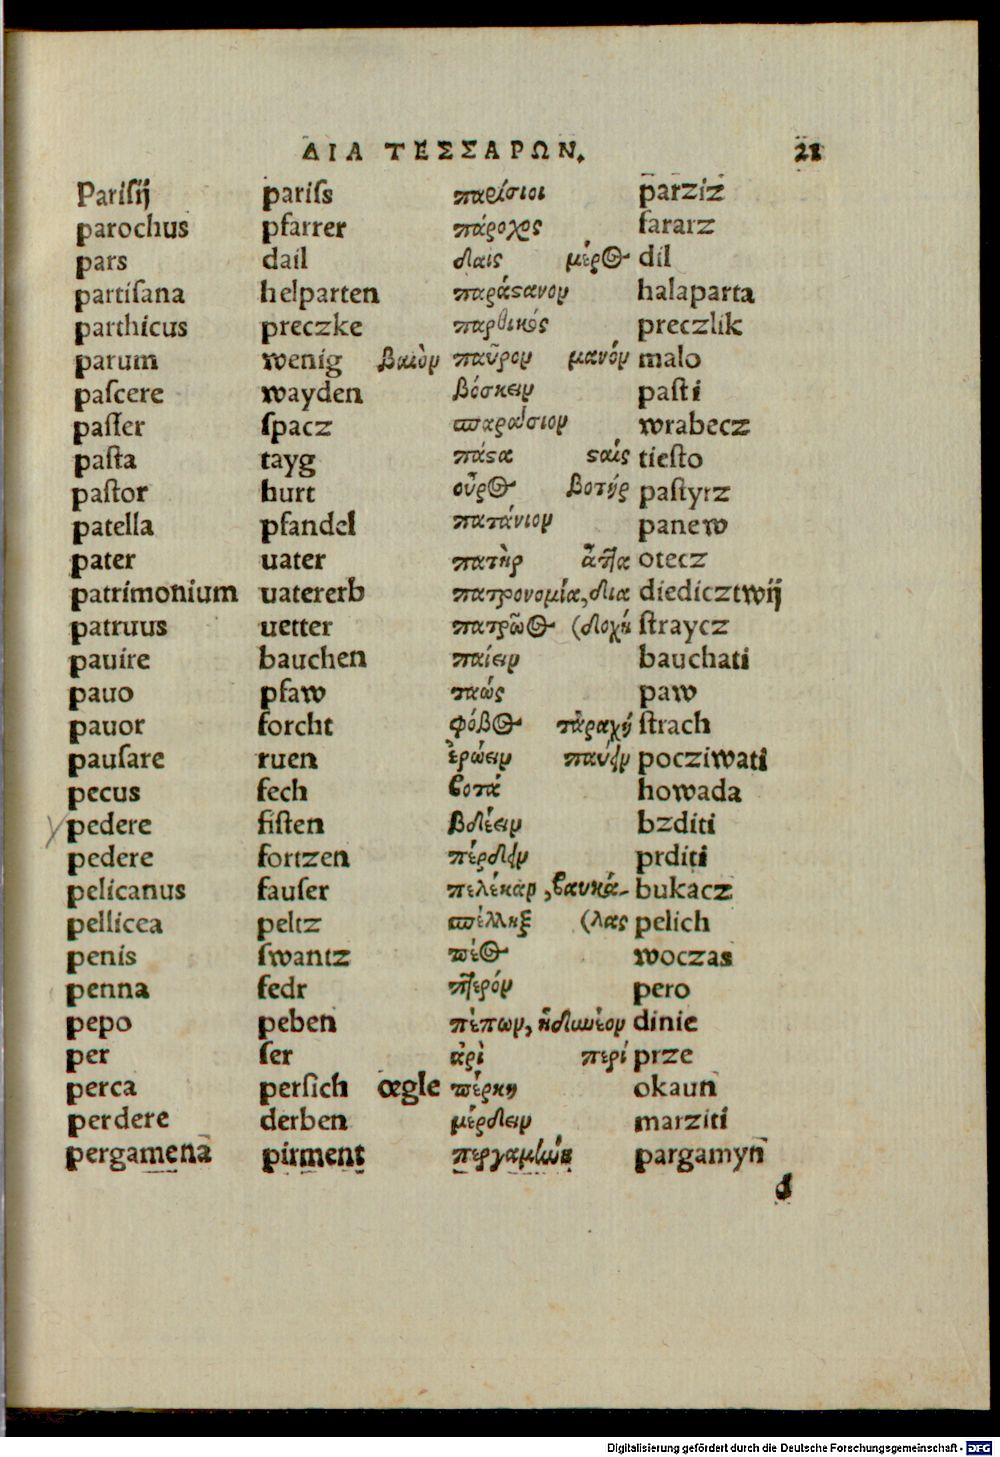 ΔΙΑ ΤΕΣΣΑΡΩΝ. 21
Pariſij pariſs παρίσιοι parziz
parochus pfarrer πάροχος fararz
pars dail δαις μέρος dil
partiſana helparten παράσανον halaparta
parthicus preczke παρθικός preczlik
parum wenig βαιὸν παῦρον μανόν malo
paſcere wayden βόσκειν paſti
paſſer ſpacz σπαράσιον wrabecz
paſta tayg πάστα σταίς tieſto
paſtor hurt οὖρος βοτήρ paſtyrz
patella pfandel πατάνιον panew
pater uater πατὴρ ἄττα otecz
patrimonium uatererb πατρονομία, δια diedicztwij
patruus uetter πατρῶος (δοχή ſtraycz
pauire bauchen παίειν bauchati
pauo pfaw ταώς paw
pauor forcht φόβος ταραχή ſtrach
pauſare ruen ἐρώειν παύειν pocziwati
pecus fech βοτά howada
pedere fiſten βδέειν bzditi
pedere fortzen πέρδειν prditi
pelicanus fauſer πελέκαν, βαυκά- bukacz
pellicea peltz πέλληξ (λας pelich
penis ſwantz πέος woczas
penna fedr πτερόν pero
pepo peben πέπων, dinie
per fer ἀρὶ περί prze
perca perſich œgle πέρκη okaun
perdere derben μέρδειν marziti
pergamenā pirment pargamyn̄
d
Digitalisierung gefördert durch die Deutsche Forschungsgemeinschaft - DFG